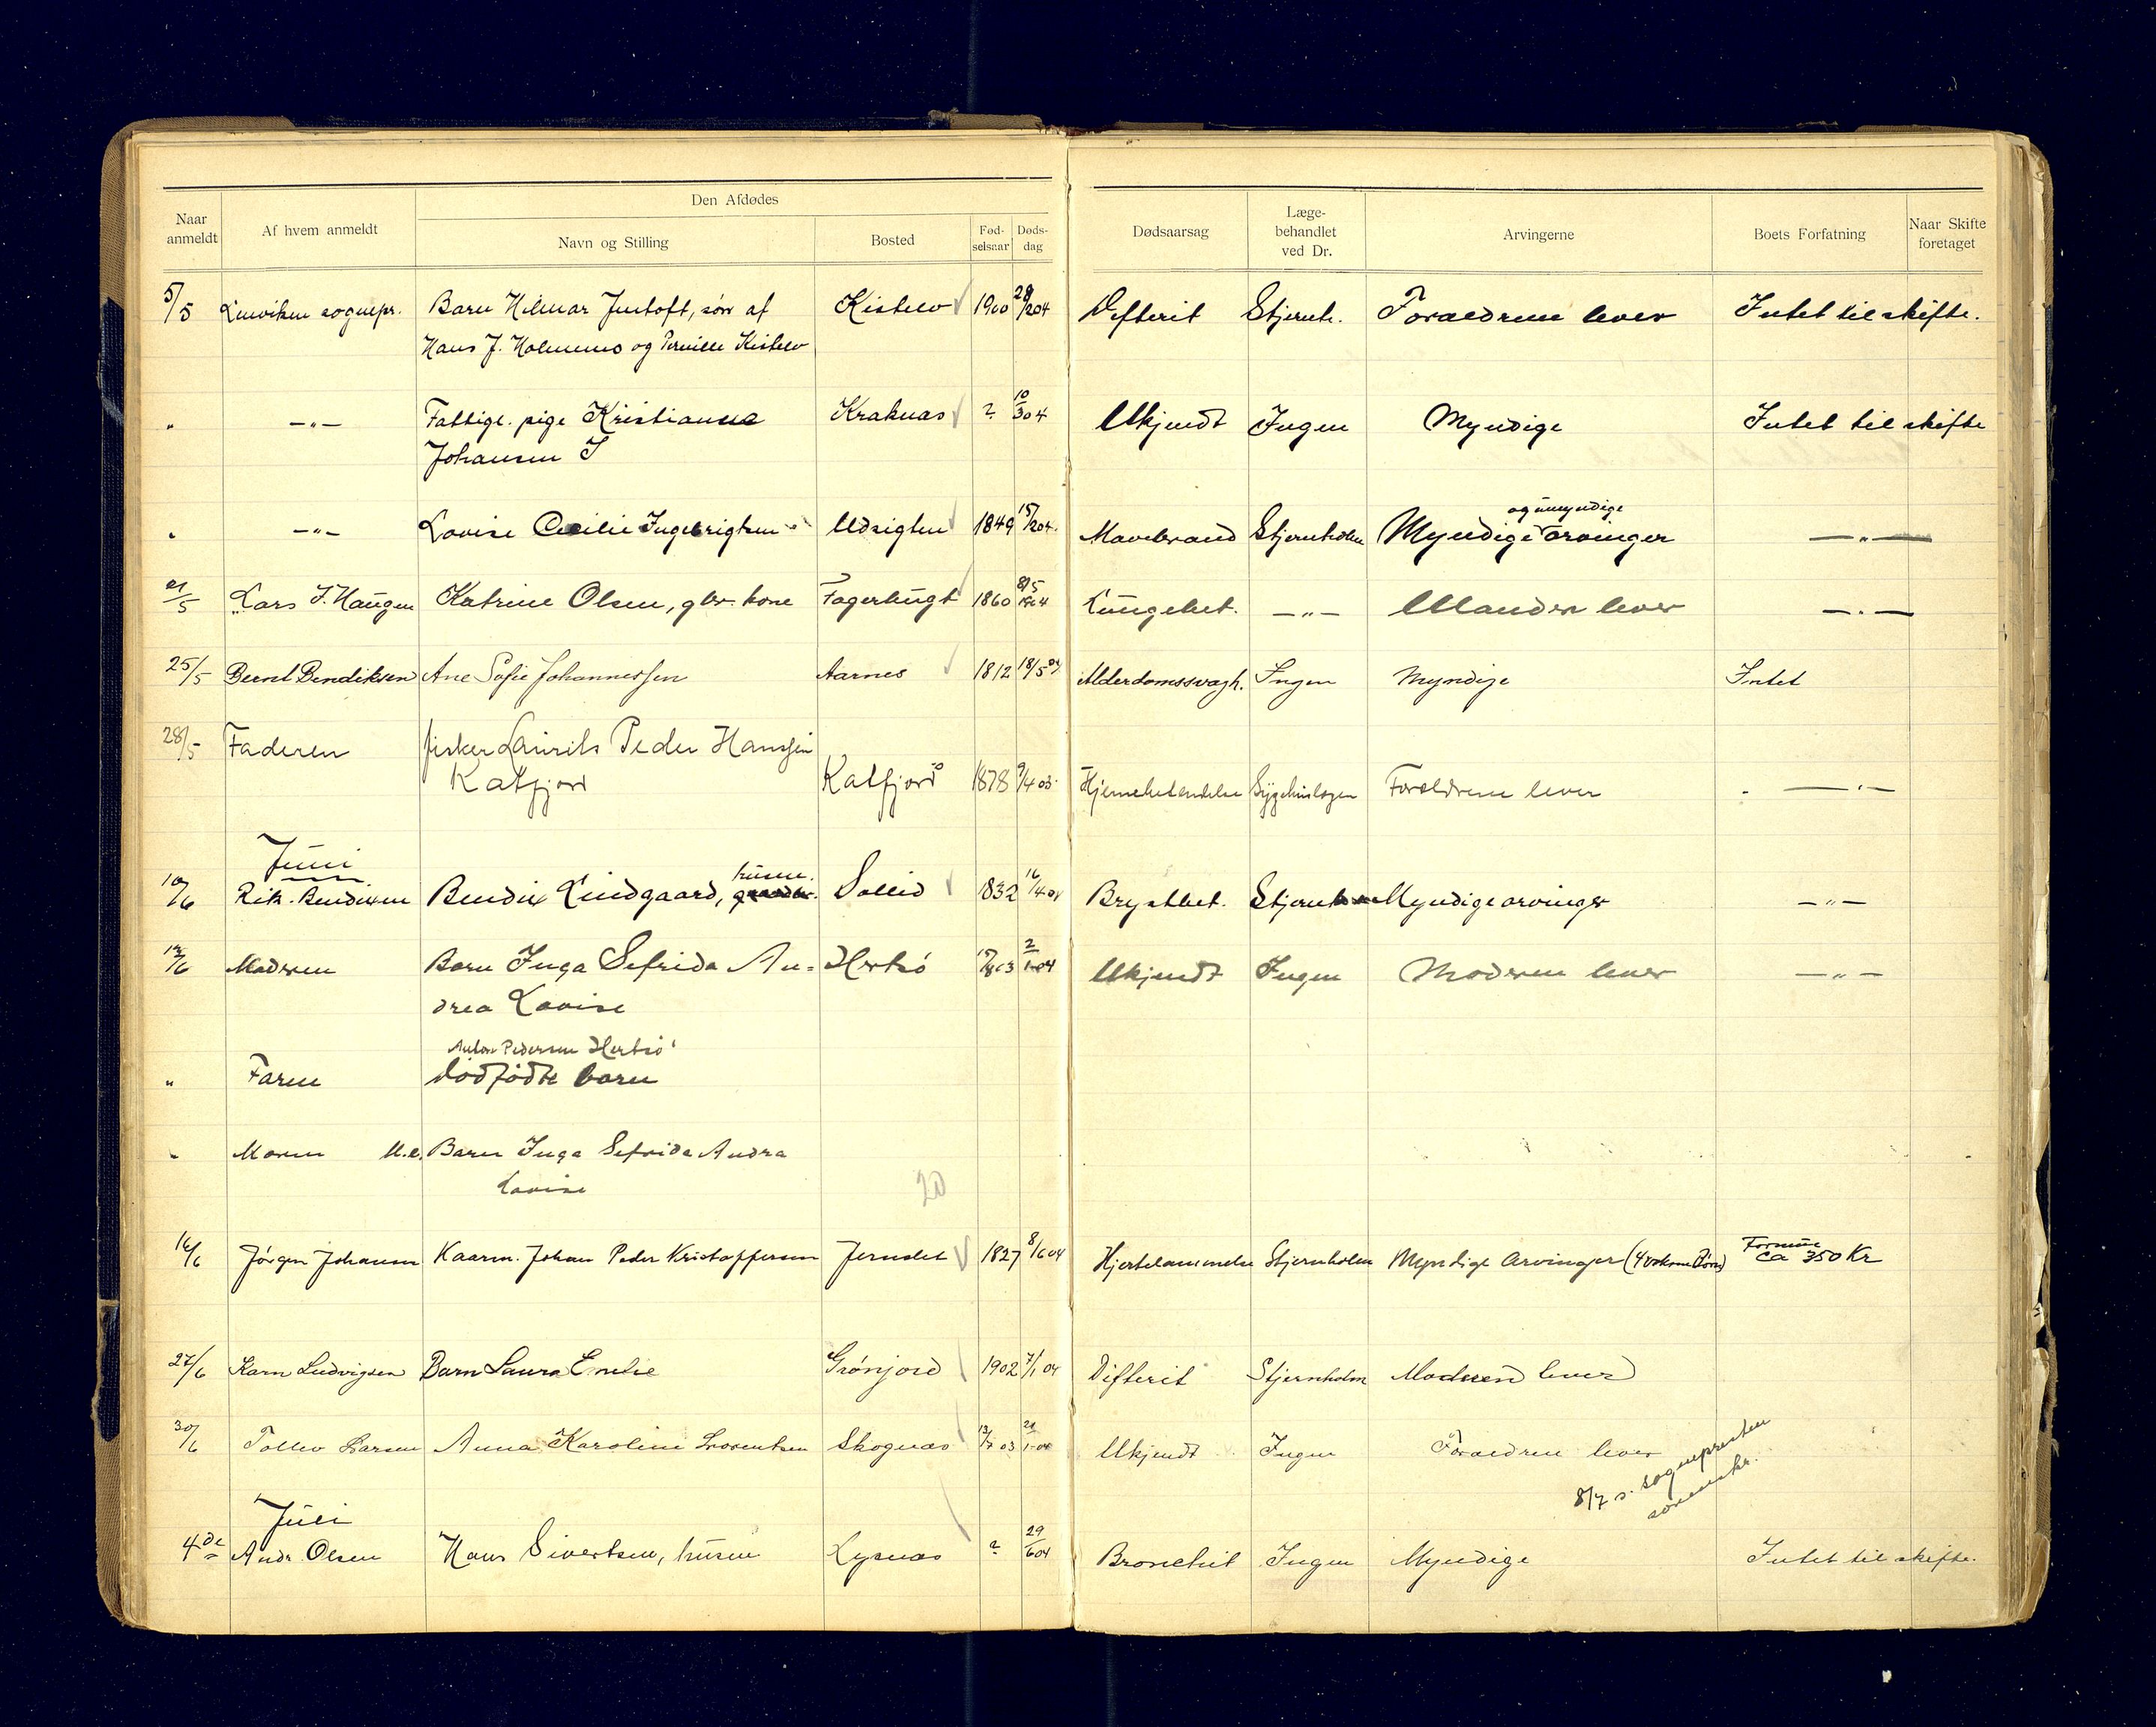 Den Afdødes
Naar anmeldt
Af hvem anmeldt
Navn og Stilling
Bosted
Fød-selsaar
Døds-dag
Dødsaarsag
Læge-behandlet ved Dr.
Arvingerne
Boets Forfatning
Naar Skifte foretaget
5/5 Lenviken sognepr. Barn Hilmar Jentoft, søn af Kistelv 1900 28/2 04 Difterit Stjernh. Forældrene lever Intet til skifte.
Hans J. Holmemo og Pernille Kistelv
" —"— Fattigl. pige Kristianna Kraknæs ? 10/3 04 Ukjendt Ingen Myndige Intet til skifte
Johansen
og umyndige
" —"— Lovise Cecilie Ingebrigtsen Udsigten 1849 15/2 04. Mavebrand Stjernholm Myndige arvinger —"—
21/5 Lars J. Haugen Katrine Olsen, gbr. kone Fagerbugt 1860 8/5 04 Lungebet. —"— Manden lever —"—
25/5 Bernt Bendiksen Ane Sofie Johannessen Aarnes 1812 18/5 04 Alderdomssvagh. Ingen Myndige Intet
28/5 Faderen fisker Laurits Peder Hanssen
Katfjord Katfjord 1878 9/4 03 Hjernebetendelse Sygehuslægen Forældrene lever —"—
Juni
husm.
10/6 Rik. Bendixen Bendix Lindgaard, Sollid 1832 16/4 04 Brystbet. Stjernholm Myndige arvinger —"—
12/6 Moderen Barn Inga Sefrida An- Hekkø 04 Ukjendt Ingen Moderen lever —"—
drea Lovise
Anton Pedersen
" Faren dødfødte barn
" Moren U.e. Barn Inga Sefrida Andra
Lovise
20
16/6 Jørgen Johansen Kaarm. Johan Peder Kristoffersen Jernslet 1827 8/6 04 Hjertelammelse Stjernholm Myndige arvinger (4 voksne Børn) Formue
ca 350 Kr
27/6 Karn Ludvigsen Barn Laura Emelie Grønjord 1902 7/1 04 Difterit Stjernholm Moderen lever
30/6 Tollev Larsen Anna Karoline Lorentsen Skognæs 03 Ukjendt Ingen Forældrene lever
8/7 s. sognepresten
Juli
4de Andr Olsen Hans Sivertsen, husm Lysnæs ? 29/6 04 Bronchit Ingen Myndige Intet til skifte.